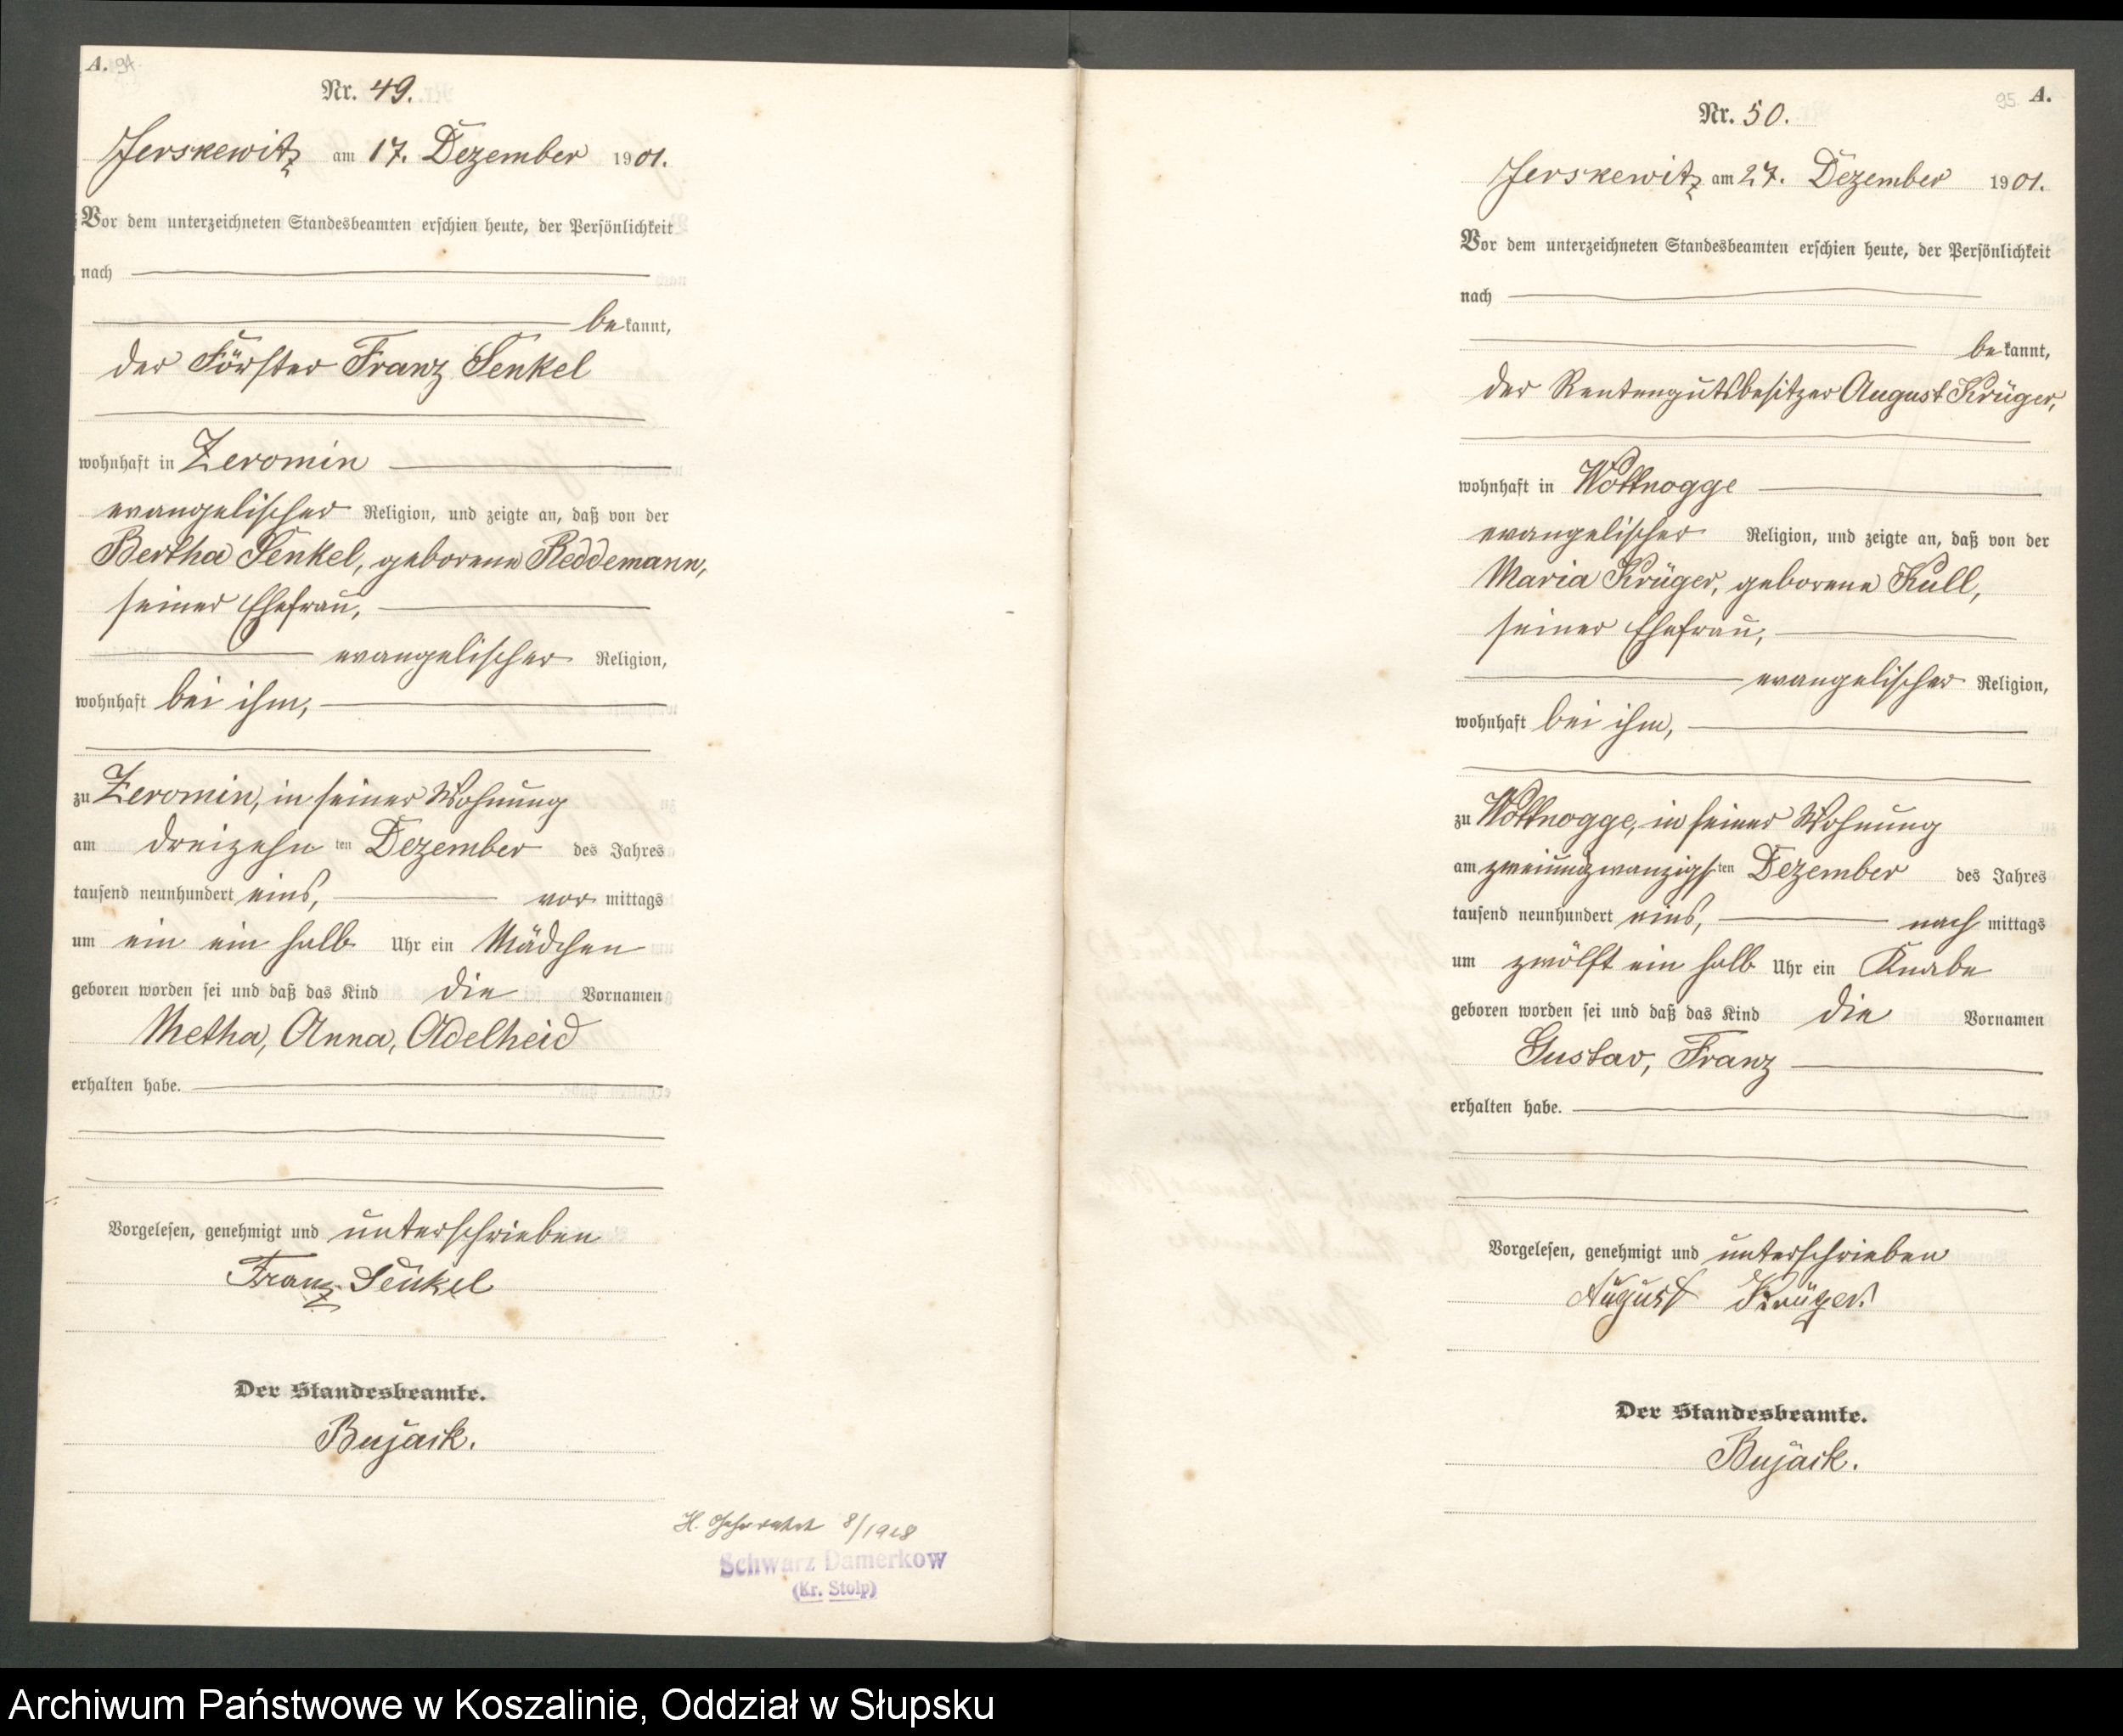 A. 94.
Nr. 49.
Jerskewitz am 17. Dezember 1901.
Vor dem unterzeichneten Standesbeamten erschien heute, der Persönlichkeit
nach
bekannt,
der Förster Franz Senkel
wohnhaft in Zeromin
evangelischer Religion, und zeigte an, daß von der
Bertha Senkel, geborene Reddemann,
seiner Ehefrau,
evangelischer Religion,
wohnhaft bei ihm,
zu Zeromin, in seiner Wohnung
am dreizehnten Dezember des Jahres
tausend neunhundert eins, vormittags
um ein ein halb Uhr ein Mädchen
geboren worden sei und daß das Kind die Vornamen
Metha, Anna, Adelheid
erhalten habe.
Vorgelesen, genehmigt und unterschrieben
Franz Senkel
Der Standesbeamte.
Bujack.
H. 8/1928
Schwarz Damerkow
(Kr. Stolp)
95. A.
Nr. 50.
Jerskewitz am 27. Dezember 1901.
Vor dem unterzeichneten Standesbeamten erschien heute, der Persönlichkeit
nach
bekannt,
der Rentengutsbesitzer August Krüger,
wohnhaft in Wottnogge
evangelischer Religion, und zeigte an, daß von der
Maria Krüger, geborene Kull,
seiner Ehefrau,
evangelischer Religion,
wohnhaft bei ihm,
zu Wottnogge, in seiner Wohnung
am zweiundzwanzigsten Dezember des Jahres
tausend neunhundert eins, nachmittags
um zwölft ein halb Uhr ein Knabe
geboren worden sei und daß das Kind die Vornamen
Gustav, Franz
erhalten habe.
Vorgelesen, genehmigt und unterschrieben
August Krüger.
Der Standesbeamte.
Bujack.
Archiwum Państwowe w Koszalinie, Oddział w Słupsku